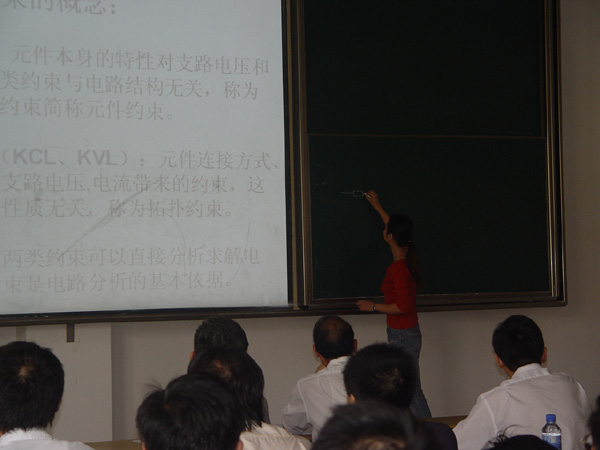 束的概念：
元件本身的特性对支路电压和
类约束与电路结构无关，称为
约束简称元件约束。
（KCL、KVL）：元件连接方式、
支路电压、电流带来的约束，这
性质无关，称为拓扑约束。
两类约束可以直接分析求解电
束是电路分析的基本依据。